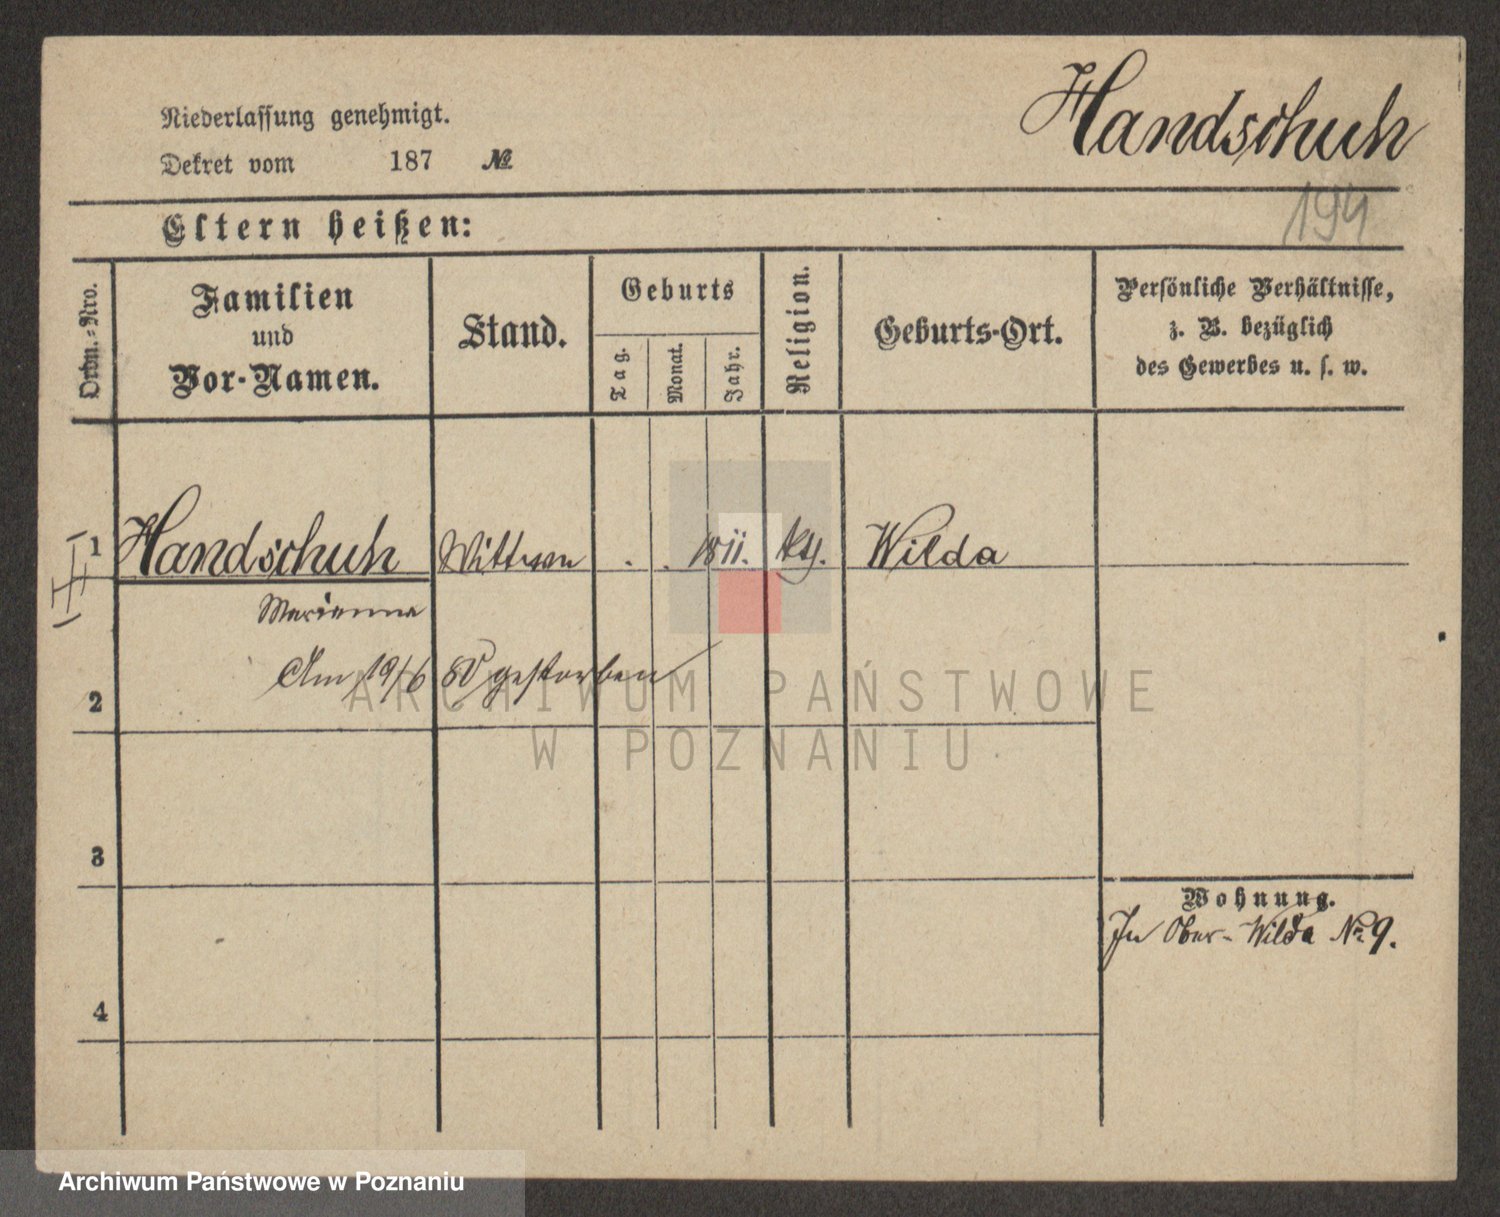 Handschuh
Niederlassung genehmigt.
Dekret vom 187 №
194
Eltern heißen:
Ordn.=Nro.
Familien
und
Vor-Namen.
Stand.
Geburts
Tag.
Monat.
Jahr.
Religion.
Geburts-Ort.
Persönliche Verhältnisse,
z. B. bezüglich
des Gewerbes u. s. w.
1 Handschuh Wittwe . . 1811. kth. Wilda
Marianna
Am 19/6 80 gestorben
2
3
Wohnung.
In Ober-Wilda № 9.
4
ARCHIWUM PAŃSTWOWE
W POZNANIU
Archiwum Państwowe w Poznaniu